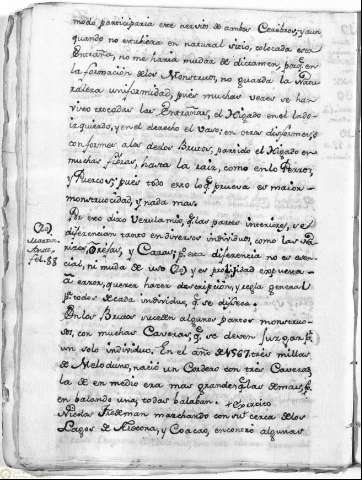 modo participaria este nervio de ambos Cerebros; y aun
quando no estubiera en natural sitio, colocada esta
Entraña, no me haria mudar de dictamen, porq.e en
la formacion de los Monstruos, no guarda la Natu
raleza uniformidad, pues muchas veces se han
visto trocadas las Entrañas, el Higado en el lado
izquierdo, y en el derecho el Vaso; en otros disformes, o
conformes a las de los Brutos, partido el Higado en
muchas fibras, hasta la raiz, como en los Perros,
y Puercos; pues todo esto lo q.e prueva es maior
monstruocidad, y nada mas.
Por esto dixo Verulamio, q.e las partes interiores, se
diferencian tanto en diversos individuos, como las Na
rices, Orejas, y Caras; p.o esta diferencia no es esen-
cial, ni muda de uso (20) y es prolijidad expuesta
a error, querer hacer descripcion, y regla general
p.r todos de cada individuo, q.e se diseca.
(20)
fol. 88
En los Brutos suceden algunos partos monstruo-
sos, con muchas Cavezas, q.e se deven juzgar p.r
un solo individuo. En el año de 1567. tres millas
de Meloduno, nació un Cordero con tres Cavezas,
la de en medio era mas grande q.e las demas, p.o
en balando una, todas balaban.
+ exercito
Nicolas marchando con su+ cerca de los
Lagos de y encontró algunas